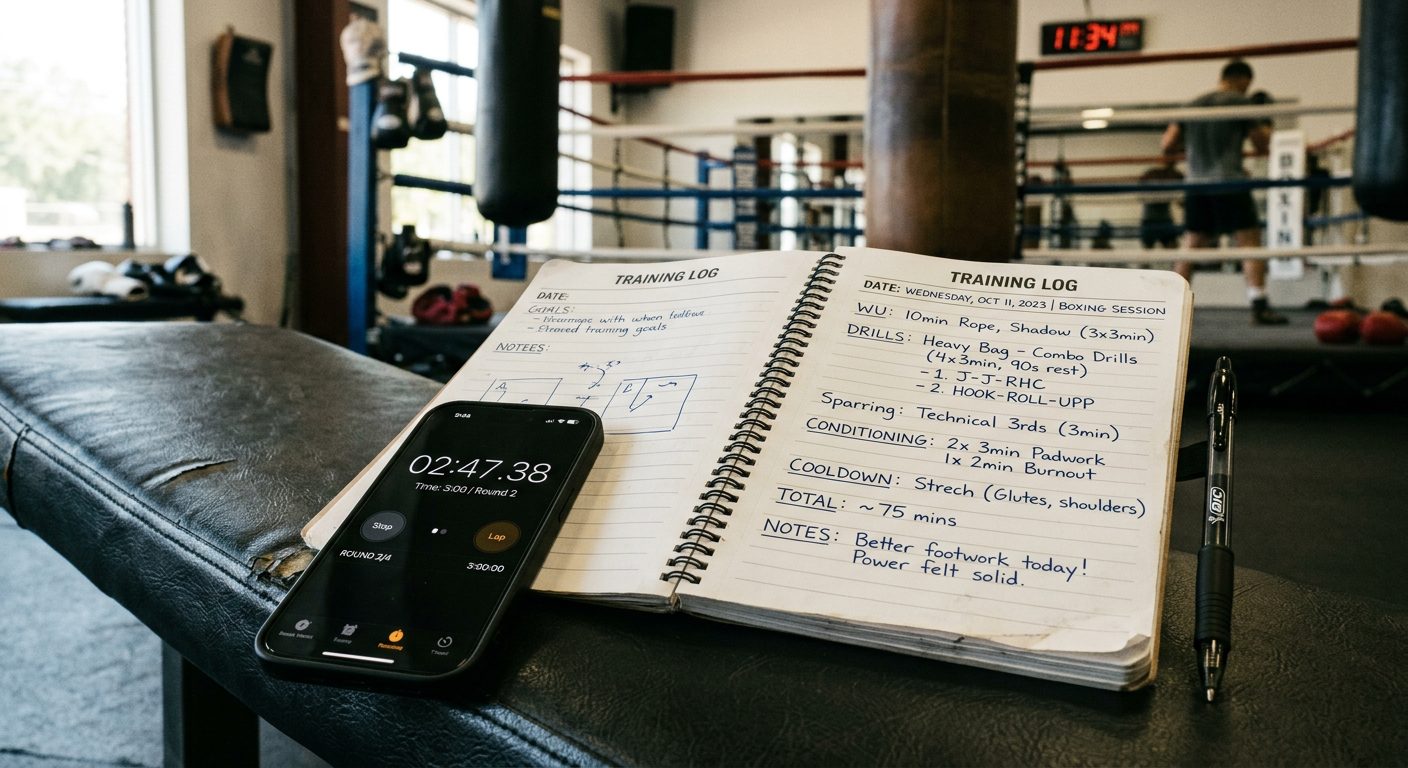 11:34
TRAINING LOG
DATE:
GOALS:
with when
training goals
NOTEES:
TRAINING LOG
DATE: WEDNESDAY, OCT 11, 2023 | BOXING SESSION
WU: 10min Rope, Shadow (3x3min)
DRILLS: Heavy Bag – Combo Drills
(4x3min, 90s rest)
- 1. J-J-RHC
- 2. HOOK-ROLL-UPP
Sparring: Technical 3rds (3min)
CONDITIONING: 2x 3min Padwork
1x 2min Burnout
COOLDOWN: Strech (Glutes, shoulders)
TOTAL: ~ 75 mins
NOTES: Better footwork today!
Power felt solid.
02:47.38
Time: 3:00 / Round 2
Stop
Lap
ROUND 2/4
3:00:00
BIC